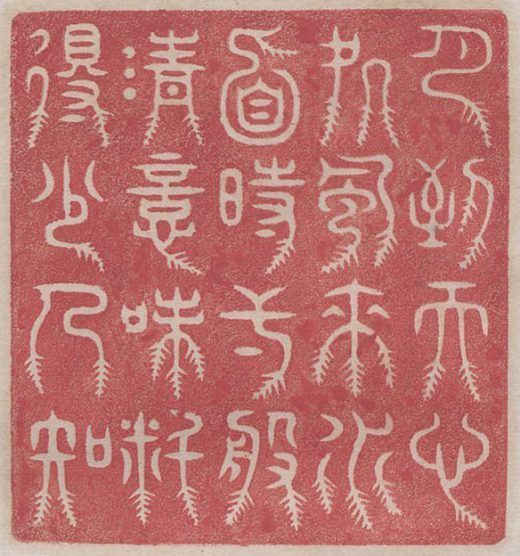 月到天心
處風來水
面時一般
清意味料
得少人知